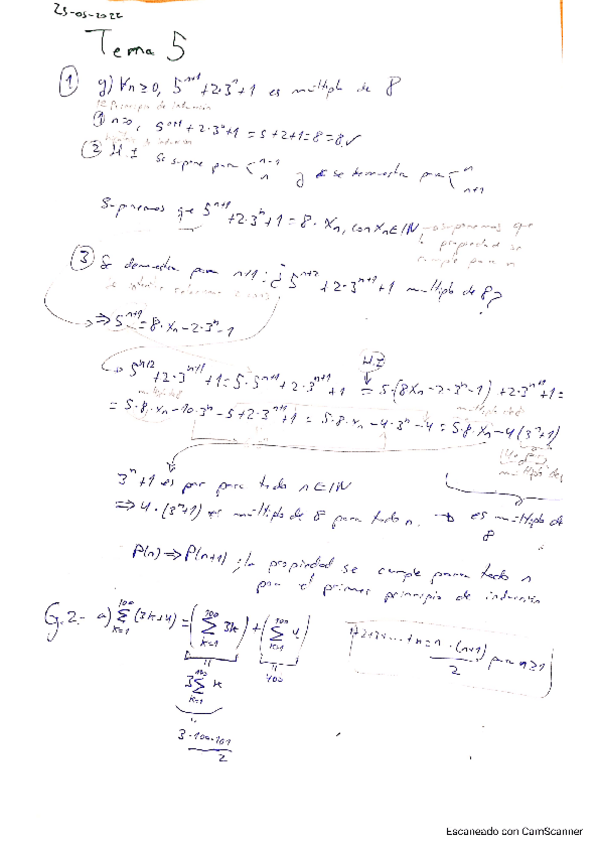 23-03-2022
Tema 5
① g) ∀n≥0, 5^{n+1}+2·3^n+1 es múltiplo de 8
① n=0, 5^{n+1}+2·3^n+1=5+2+1=8=8✓
② Se supone para {n-1 n y se demuestra para {n n+1
Suponemos que 5^{n+1}+2·3^n+1=8·Xn, con Xn∈ℕ
suponemos que
la propiedad se
cumple para n
③ Se demuestra para n+1: ¿5^{n+2}+2·3^{n+1}+1 múltiplo de 8?
⇒5^{n+1}=8·Xn-2·3^n-1
5^{n+2}+2·3^{n+1}+1=5·5^{n+1}+2·3^{n+1}+1 = 5·(8Xn-2·3^n-1)+2·3^{n+1}+1=
=5·8·Xn-10·3^n-5+2·3^{n+1}+1=5·8·Xn-4·3^n-4=5·8·Xn-4(3^n+1)
3^n+1 es par para todo n∈ℕ
⇒4·(3^n+1) es múltiplo de 8 para todo n. → es múltiplo de
8
P(n)⇒P(n+1); la propiedad se cumple para todo n
por el primer principio de inducción
G.2.- a) ∑_{k=1}^{100}(3k+4)=(∑_{k=1}^{100} 3k)+(∑_{k=1}^{100} 4)
1+2+3+...+n=n·(n+1)/2 para n≥1
3∑_{k=1}^{100} k
400
3·100·101/2
Escaneado con CamScanner